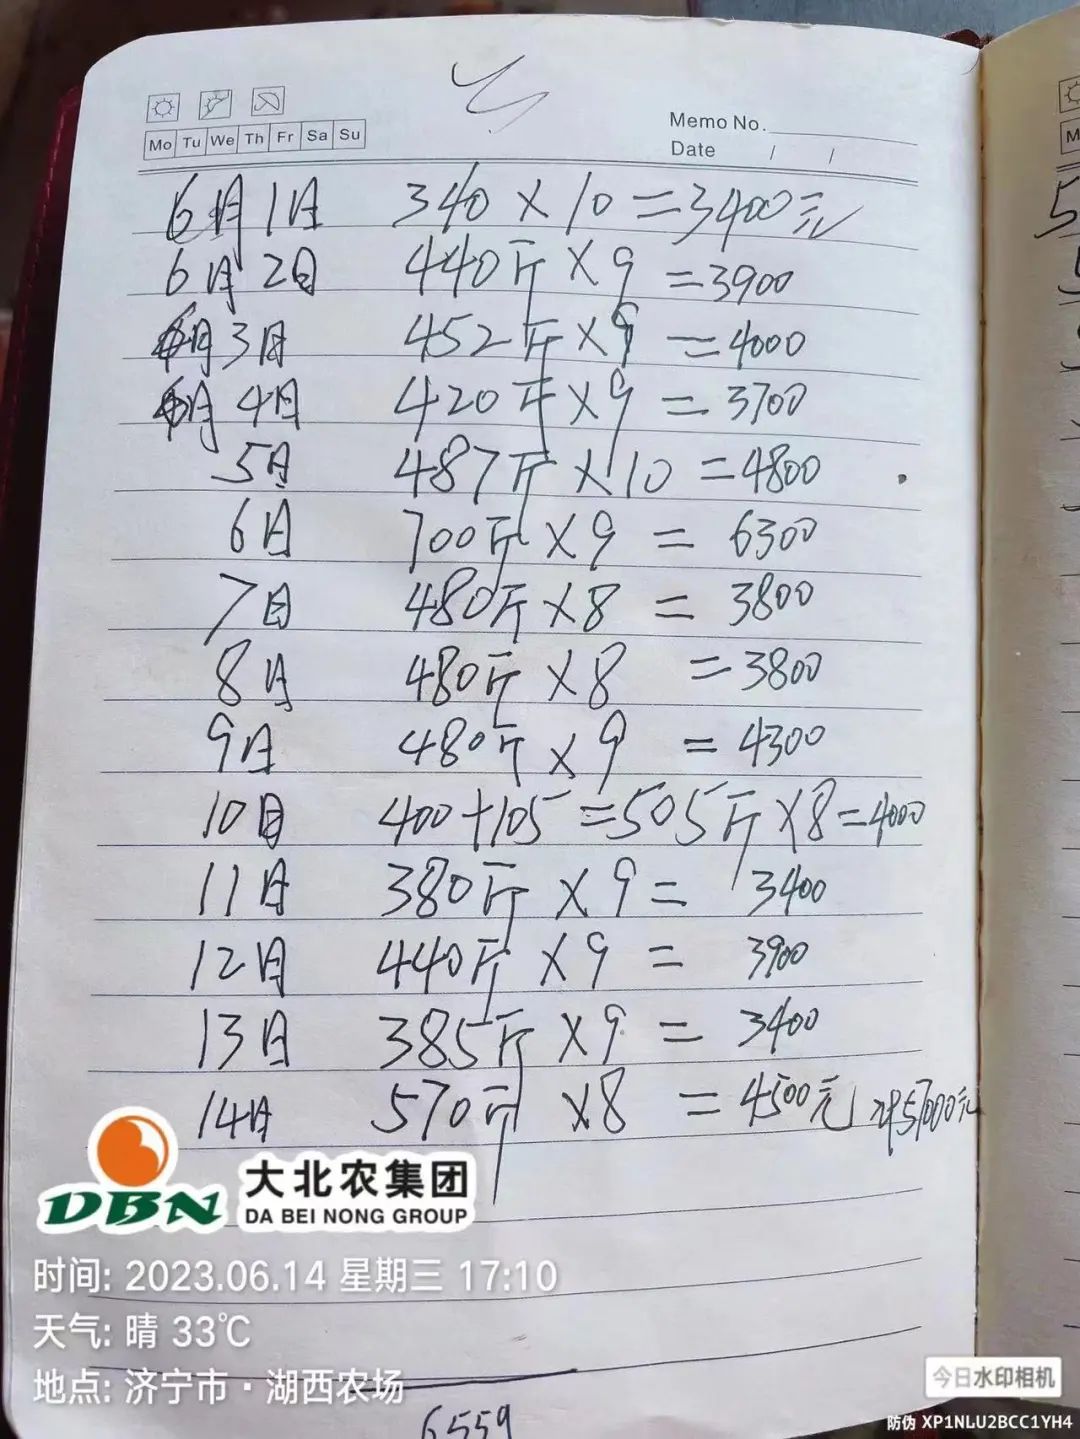 Memo No.
Mo Tu We Th Fr Sa Su
Date / /
6月1日 340×10=3400元
6月2日 440斤×9=3900
6月3日 452斤×9=4000
6月4日 420斤×9=3700
5日 487斤×10=4800
6日 700斤×9=6300
7日 480斤×8=3800
8日 480斤×8=3800
9日 480斤×9=4300
10日 400+105=505斤×8=4000
11日 380斤×9=3400
12日 440斤×9=3900
13日 385斤×9=3400
14日 570斤×8=4500元 57000元
DBN 大北农集团
DA BEI NONG GROUP
时间: 2023.06.14 星期三 17:10
天气: 晴 33℃
地点: 济宁市·湖西农场
6559
今日水印相机
防伪 XP1NLU2BCC1YH4